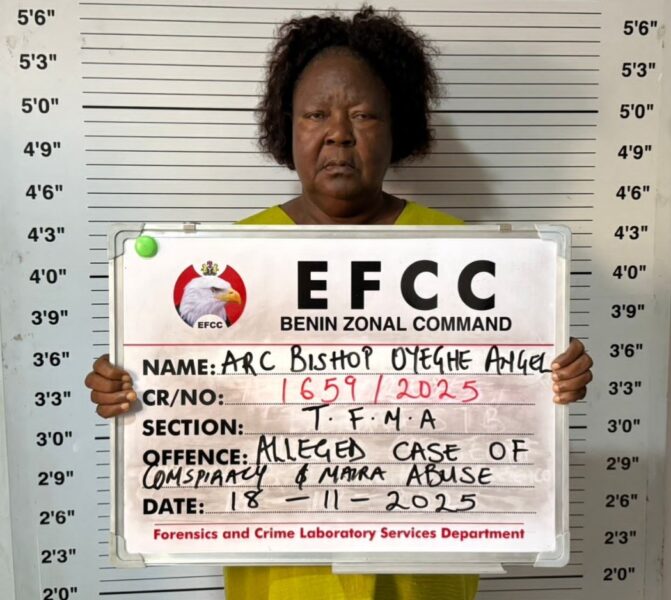 5'6"
5'6"
5'3"
5'3"
5'0"
5'0"
4'9"
4'9"
4'6"
4'6"
4'3"
4'3"
4'0"
4'0"
3'9"
3'9"
3'6"
3'6"
3'3"
3'3"
3'0"
3'0"
2'9"
2'9"
2'6"
2'6"
2'3"
2'3"
2'0"
2'0"
EFCC
EFCC
BENIN ZONAL COMMAND
NAME: ARC BISHOP OYEGHE ANGEL
CR/NO: 1659/2025
SECTION: T.F.M.A
OFFENCE: ALLEGED CASE OF
COMSPIRACY & MAIRA ABUSE
DATE: 18-11-2025
Forensics and Crime Laboratory Services Department